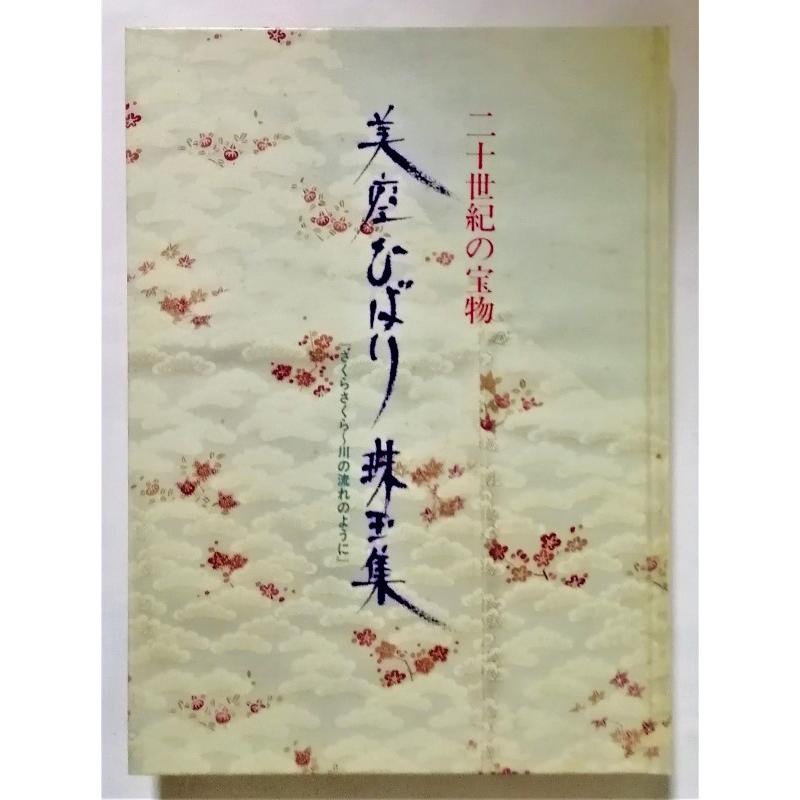 二十世紀の宝物
美空ひばり 珠玉集
「さくらさくら～川の流れのように」